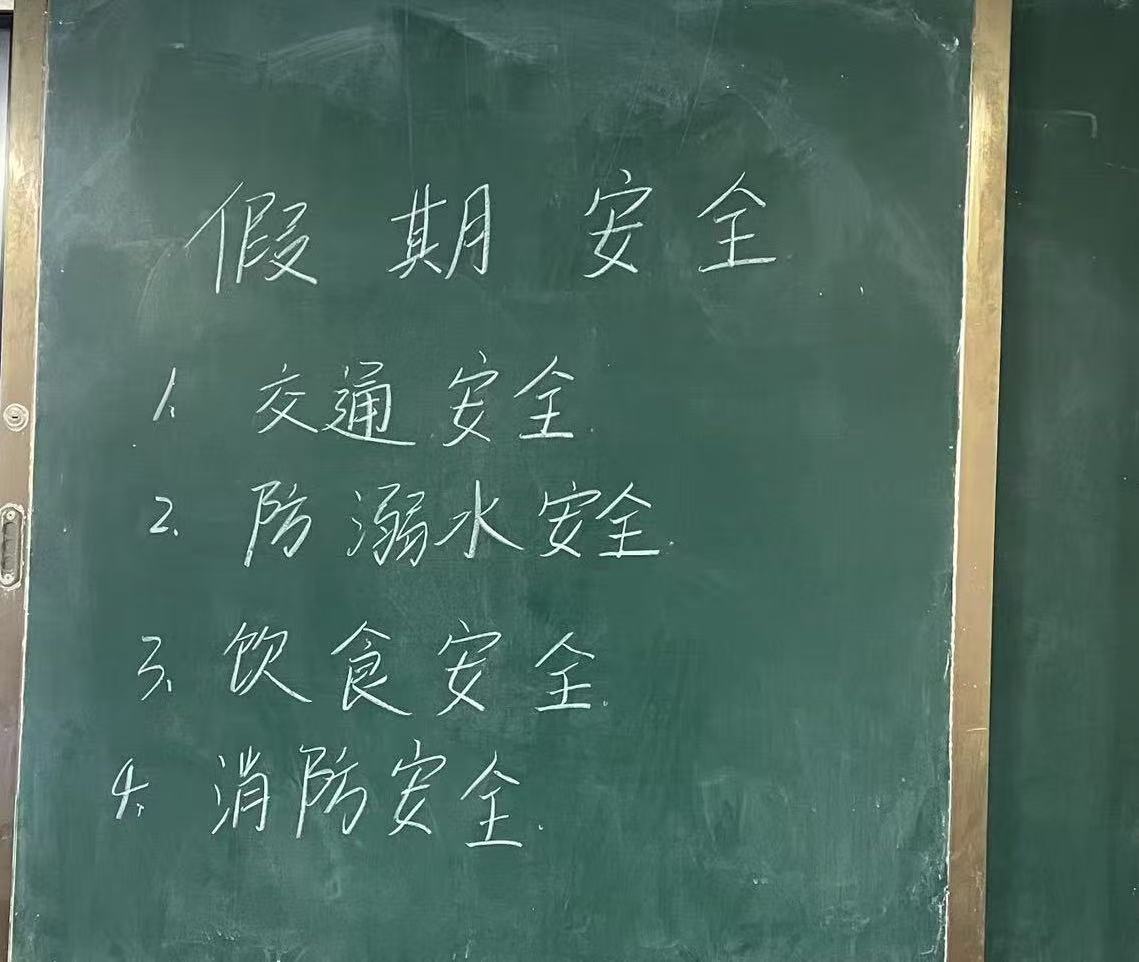 假期安全
1. 交通安全.
2. 防溺水安全.
3. 饮食安全.
4. 消防安全.